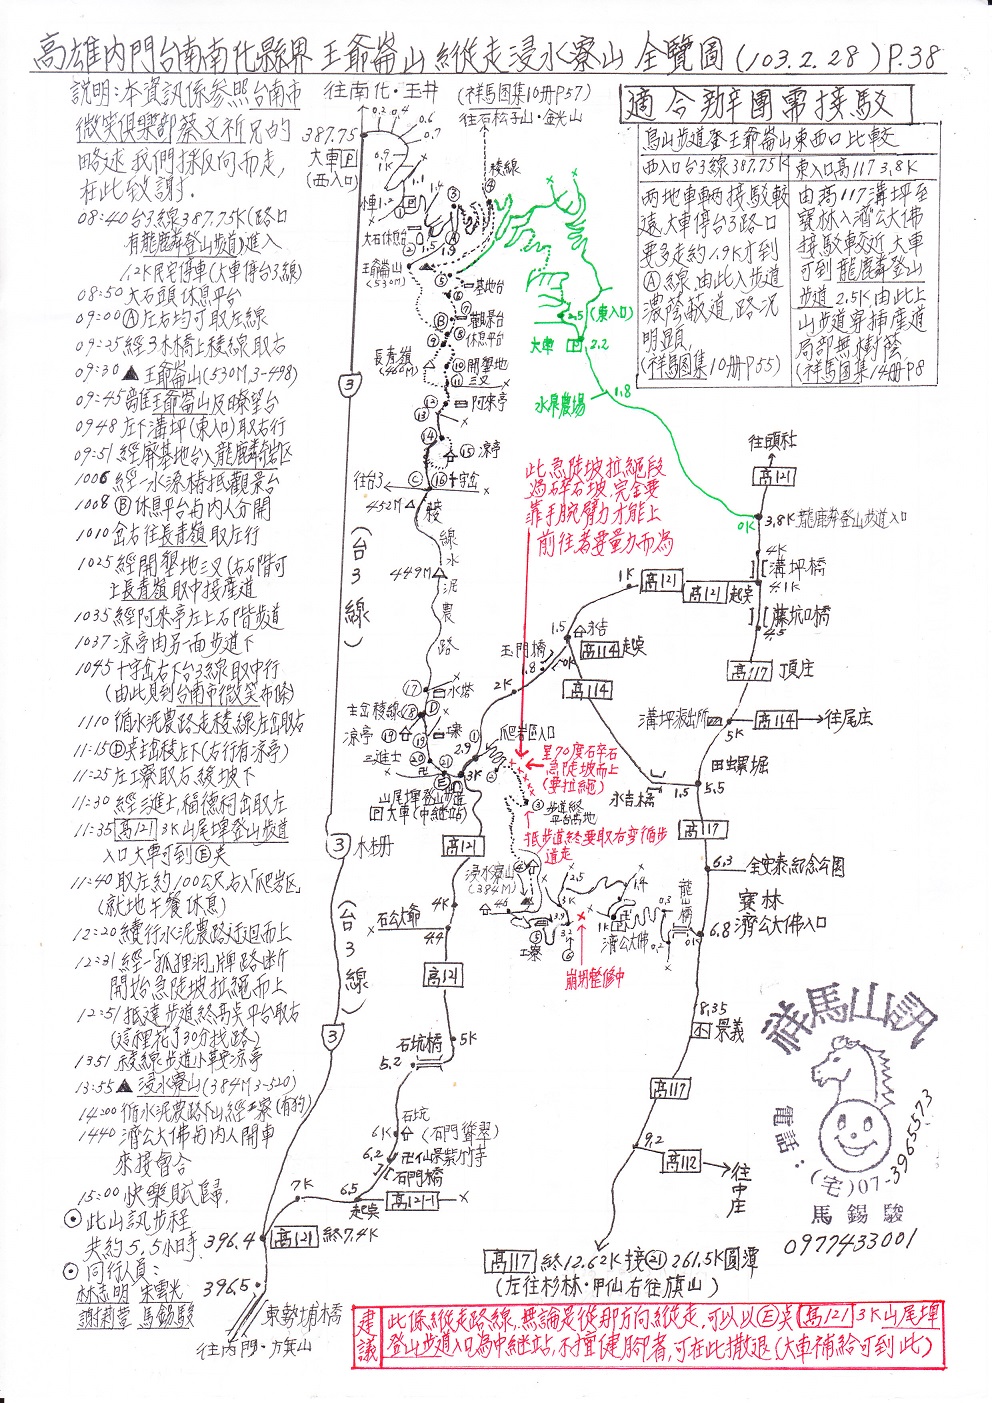 高雄內門台南南化縣界 王爺崙山 縱走浸水寮山 全覽圖 (103.2.28) P.38
說明:本資訊係參照台南市
微笑俱樂部蔡文祈兄的
略述我們採反向而走,
在此致謝.
08:40 台3線387.75K(路口
有龍麟登山步道)進入
1.2K民宅停車(大車停台3線)
08:50 大石頭休息平台
09:00 Ⓐ左右均可取左線
09:25 經3木橋上稜線取右
09:30 ▲王爺崙山(530M,3-498)
09:45 離王爺崙山及瞭望台
0948 左下溝坪(東入口)取右行
09:51 經屏基地台入龍麟岩區
1006 經一水漾橋抵觀景台
1008 Ⓑ休息平台与內人分開
1010 岔右往長青嶺取左行
1025 經開墾地三叉(右石階可
上長青嶺取中接產道
1035 經阿來亭左上石階步道
1037 涼亭由另一面步道下
1045 十字岔右下台3線取中行
(由此見到台南市微笑布條)
1110 循水泥農路走稜線左岔取右
11:15 Ⓓ吳主岔稜左下(右行有涼亭)
11:25 左工寮取右緩坡下
11:30 經三進士,福德祠岔取左
11:35 高121 3K山尾埤登山步道
入口大車可到Ⓔ吳
11:40 取左約100公尺右入「爬岩区」
(就地午餐休息)
12:20 續行水泥農路迂迴而上
12:31 經「狐狸洞」牌路斷
開始急陡坡拉繩而上
12:51 抵達步道終高吳平台取右
(這裡花了30分找路)
1351 稜線步道小葉安涼亭
13:55 ▲浸水寮山(384M 3-520)
14:00 循水泥農路下山經工寮(有狗)
1440 濟公大佛与內人開車
來接會合
15:00 快樂賦歸.
⊙此山訊步程
共約5.5小時.
⊙同行人員:
林志明 宋雲光
謝莉萱 馬錫駿
往南化·玉井
(祥馬图集10册P57)
往石松子山·金光山
適合辦團需接駁
烏山步道登王爺崙山東西口比較
西入口台3線387.75K
兩地車輛接駁較
遠,大車停台3路口
要多走約1.9K才到
Ⓐ線,由此入步道
濃蔭蔽道,路況
明顯,
(祥馬图集10册P55)
東入口高117 3.8K
由高117溝坪至
寶林入濟公大佛
接駁較近,大車
可到龍麟登山
步道2.5K由此上
山步道穿插產道
局部無樹蔭,
(祥馬图集14册P8
387.75
大車P
(西入口)
0.2
0.4
0.6
0.7
0.9
1K
1.1
1.2
1.4
1.5
1.9
稜線
大石休息台
王爺崙山
(530M)
基地台
觀景台
休息平台
長青嶺
(466M)
開墾地
三叉
阿來亭
涼亭
十字岔
往台3
452M
稜
線
水
泥
農
路
449M
水塔
主岔稜線
涼亭
寮
三進士
山尾埤登山步道
P大車(中継站)
2.5(東入口)
大車P 2.2
水泉農場
1.8
0K
此急陡坡拉繩段
過碎石坡,完全要
靠手腕臂力才能上
前往者要量力而為
往頭社
高121
3.8K龍麟登山步道入口
4K
溝坪橋
4.1K
高121 起吳
藤坑口橋
4.5
高117 頂庄
溝坪派出所
5K
高114 往尾庄
田螺堀
5.5
1.5
永吉橋
1K 高121
1.5
永吉
高114 起吳
0K
玉門橋
1.8
2K
高114
爬岩区入口
2.9
3K
呈70度石碎石
急陡坡而上
(要拉繩)
步道終
平台高地
抵步道終要取右旁循步
道走
高117
6.3 全安泰紀念公園
寶林
6.8 濟公大佛入口
龍山橋
0K
0.2
0.3
1K
濟公大佛
1.4
2.5
3K
3.2
3.9
4.6
工寮
浸水寮山
(384M)
崩坍整修中
8.35
景義
高117
9.2
高112 往中庄
高117 終12.62K 接㉑261.5K圓潭
(左往杉林·甲仙右往旗山)
3
(台3線)
3 木柵
(台3線)
3
高121
4K
石公大爺
4.4
高121
石坑橋
5K
5.2
石坑
6K (石門聳翠)
6.2 卍仙景紫竹寺
石門橋
6.5
起吳 高121-1
7K
396.4 高121 終7.4K
396.5
東勢埔橋
往內門·旗山
祥馬山訊
電話:(宅)07-3965573
馬錫駿
0977433001
建議
此係縱走路線,無論是從那方向縱走,可以以Ⓔ吳高121 3K山尾埤
登山步道入口為中継站,不擅健腳者,可在此撤退(大車補給可到此)